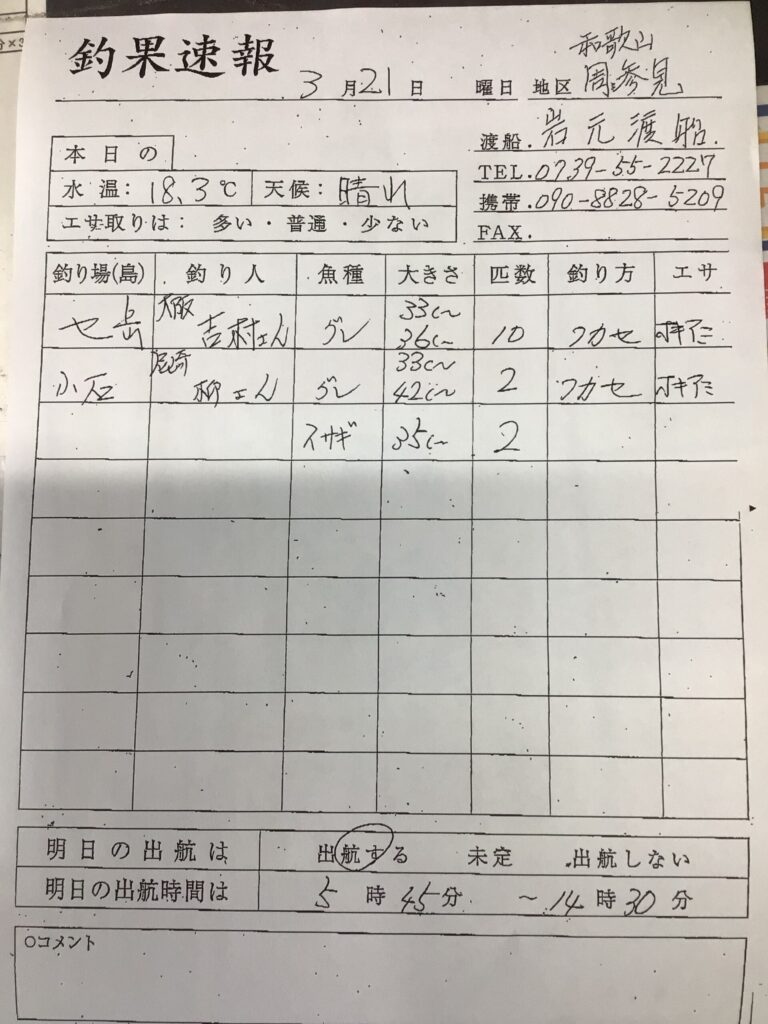 釣果速報
3月21日 曜日 地区 和歌山 周参見
渡船. 岩元渡船.
TEL. 0739-55-2227
携帯. 090-8828-5209
FAX.
本日の
水温: 18.3℃ 天候: 晴れ
エサ取りは: 多い・普通・少ない
釣り場(島) 釣り人 魚種 大きさ 匹数 釣り方 エサ
大阪 吉村さん グレ 33㎝~36㎝ 10 フカセ オキアミ
小石 尼崎 柳さん グレ 33㎝~42㎝ 2 フカセ オキアミ
35㎝ 2
明日の出航は 出航する 未定 出航しない
明日の出航時間は 5時45分 ~14時30分
○コメント